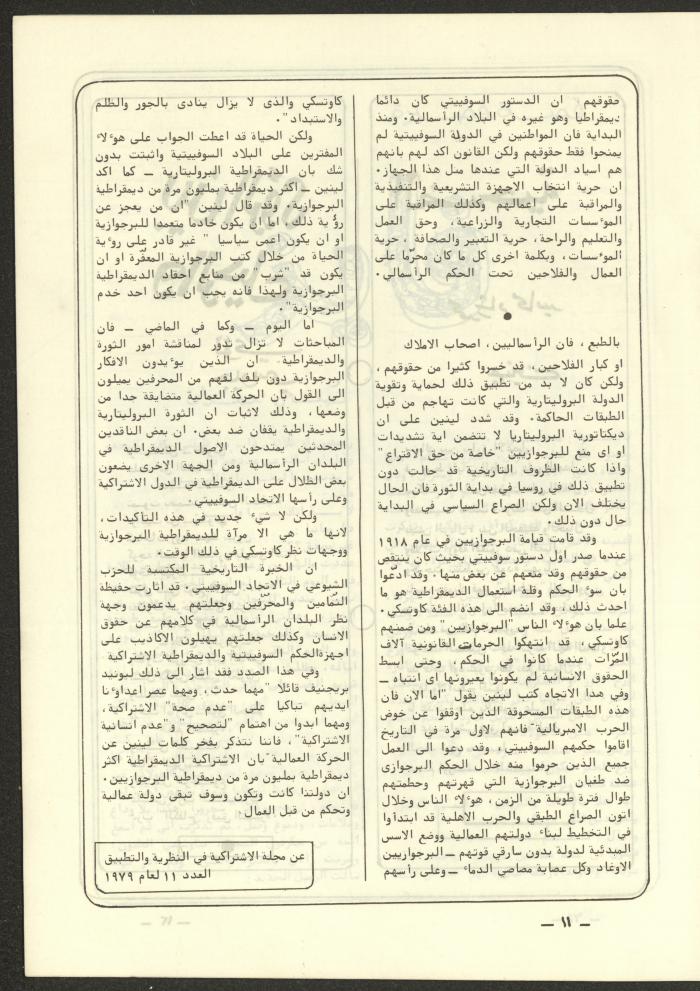 حقوقهم ، ان الدستور السوفييتي كان دائما
ديمقراطيا وهو غيره في البلاد الرأسمالية . ومنذ
البداية فان المواطنين في الدولة السوفييتية لم
يمنحوا فقط حقوقهم ولكن القانون اكد لهم بانهم
هم اسياد الدولة التي عندها مثل هذا الجهاز .
ان حرية انتخاب الاجهزة التشريعية والتنفيذية
والمراقبة على اعمالهم وكذلك المراقبة على
الموءسسات التجارية والزراعية ، وحق العمل
والتعليم والراحة ، حرية التعبير والصحافة ، حرية
الموءسسات ، وبكلمة اخرى كل ما كان محرّما على
العمال والفلاحين تحت الحكم الرأسمالي .
بالطبع ، فان الرأسماليين ، اصحاب الاملاك
او كبار الفلاحين ، قد خسروا كثيرا من حقوقهم ،
ولكن كان لا بد من تطبيق ذلك لحماية وتقوية
الدولة البروليتارية والتي كانت تهاجم من قبل
الطبقات الحاكمة . وقد شدد لينين على ان
ديكتاتورية البروليتاريا لا تتضمن اية تشديدات
او اى منع للبرجوازيين "خاصة من حق الاقتراع"
واذا كانت الظروف التاريخية قد حالت دون
تطبيق ذلك في روسيا في بداية الثورة فان الحال
يختلف الان ولكن الصراع السياسي في البداية
حال دون ذلك .
وقد قامت قيامة البرجوازيين في عام ١٩١٨
عندما صدر اول دستور سوفييتي بحيث كان ينتقص
من حقوقهم وقد منعهم عن بعض منها . وقد ادّعوا
بان سوء الحكم وقلة استعمال الديمقراطية هو ما
احدث ذلك ، وقد انضم الى هذه الفئة كاوتسكي .
علما بان هوءلاء الناس "البرجوازيين" ومن ضمنهم
كاوتسكي ، قد انتهكوا الحرمات القانونية آلاف
المرّات عندما كانوا في الحكم ، وحتى ابسط
الحقوق الانسانية لم يكونوا يعيرونها اى انتباه ــ
وفي هذا الاتجاه كتب لينين يقول "اما الان فان
هذه الطبقات المسحوقة الذين اوقفوا عن خوض
الحرب الامبريالية فانهم لاول مرة في التاريخ
اقاموا حكمهم السوفييتي ، وقد دعوا الى العمل
جميع الذين حرموا منه خلال الحكم البرجوازى
ضد طغيان البرجوازية التي قهرتهم وحطمتهم
طوال فترة طويلة من الزمن ، هوءلاء الناس وخلال
اتون الصراع الطبقي والحرب الاهلية قد ابتدأوا
في التخطيط لبناء دولتهم العمالية ووضع الاسس
المبدئية لدولة بدون سارقي قوتهم ــ البرجوازيين
الاوغاد وكل عصابة مصاصي الدماء ــ وعلى رأسهم
كاوتسكي والذى لا يزال ينادى بالجور والظلم
والاستبداد" .
ولكن الحياة قد اعطت الجواب على هوءلاء
المفترين على البلاد السوفييتية واثبتت بدون
شك بان الديمقراطية البروليتارية ــ كما اكد
لينين ــ اكثر ديمقراطية بمليون مرة من ديمقراطية
البرجوازية . وقد قال لينين "ان من يعجز عن
روءية ذلك ، اما ان يكون خادما متعمدا للبرجوازية
او ان يكون اعمى سياسيا " غير قادر على روءية
الحياة من خلال كتب البرجوازية المعفّرة او ان
يكون قد "شرب" من منابع احقاد الديمقراطية
البرجوازية ولهذا فانه يجب ان يكون احد خدم
البرجوازية" .
اما اليوم ــ وكما في الماضي ــ فان
المباحثات لا تزال تدور لمناقشة امور الثورة
والديمقراطية . ان الذين يوءيدون الافكار
البرجوازية دون بلف لفهم من المحرفين يميلون
الى القول بان الحركة العمالية متضايقة جدا من
وضعها ، وذلك لاثبات ان الثورة البروليتارية
والديمقراطية يقفان ضد بعض . ان بعض الناقدين
المحدثين يمتدحون الاصول الديمقراطية في
البلدان الرأسمالية ومن الجهة الاخرى يضعون
بعض الظلال على الديمقراطية في الدول الاشتراكية
وعلى رأسها الاتحاد السوفييتي .
ولكن لا شيء جديد في هذه التأكيدات ،
لانها ما هي الا مرآة للديمقراطية البرجوازية
ووجهات نظر كاوتسكي في ذلك الوقت .
ان الخبرة التاريخية المكتسبة للحزب
الشيوعي في الاتحاد السوفييتي . قد اثارت حفيظة
النمّامين والمحرّفين وجعلتهم يدعمون وجهة
نظر البلدان الرأسمالية في كلامهم عن حقوق
الانسان وكذلك جعلتهم يهيلون الاكاذيب على
اجهزة الحكم السوفييتية والديمقراطية الاشتراكية
وفي هذا الصدد فقد اشار الى ذلك ليونيد
بريجنيف قائلا "مهما حدث ، ومهما عصر اعداوءنا
ايديهم تباكيا على "عدم صحة" الاشتراكية ،
ومهما ابدوا من اهتمام "لتصحيح" و"عدم انسانية
الاشتراكية" ، فاننا نتذكر بفخر كلمات لينين عن
الحركة العمالية "بان الاشتراكية الديمقراطية اكثر
ديمقراطية بمليون مرة من ديمقراطية البرجوازيين .
ان دولتنا كانت وتكون وسوف تبقى دولة عمالية
وتحكم من قبل العمال .
عن مجلة الاشتراكية في النظرية والتطبيق
العدد ١١ لعام ١٩٧٩
ــ ١١ ــ